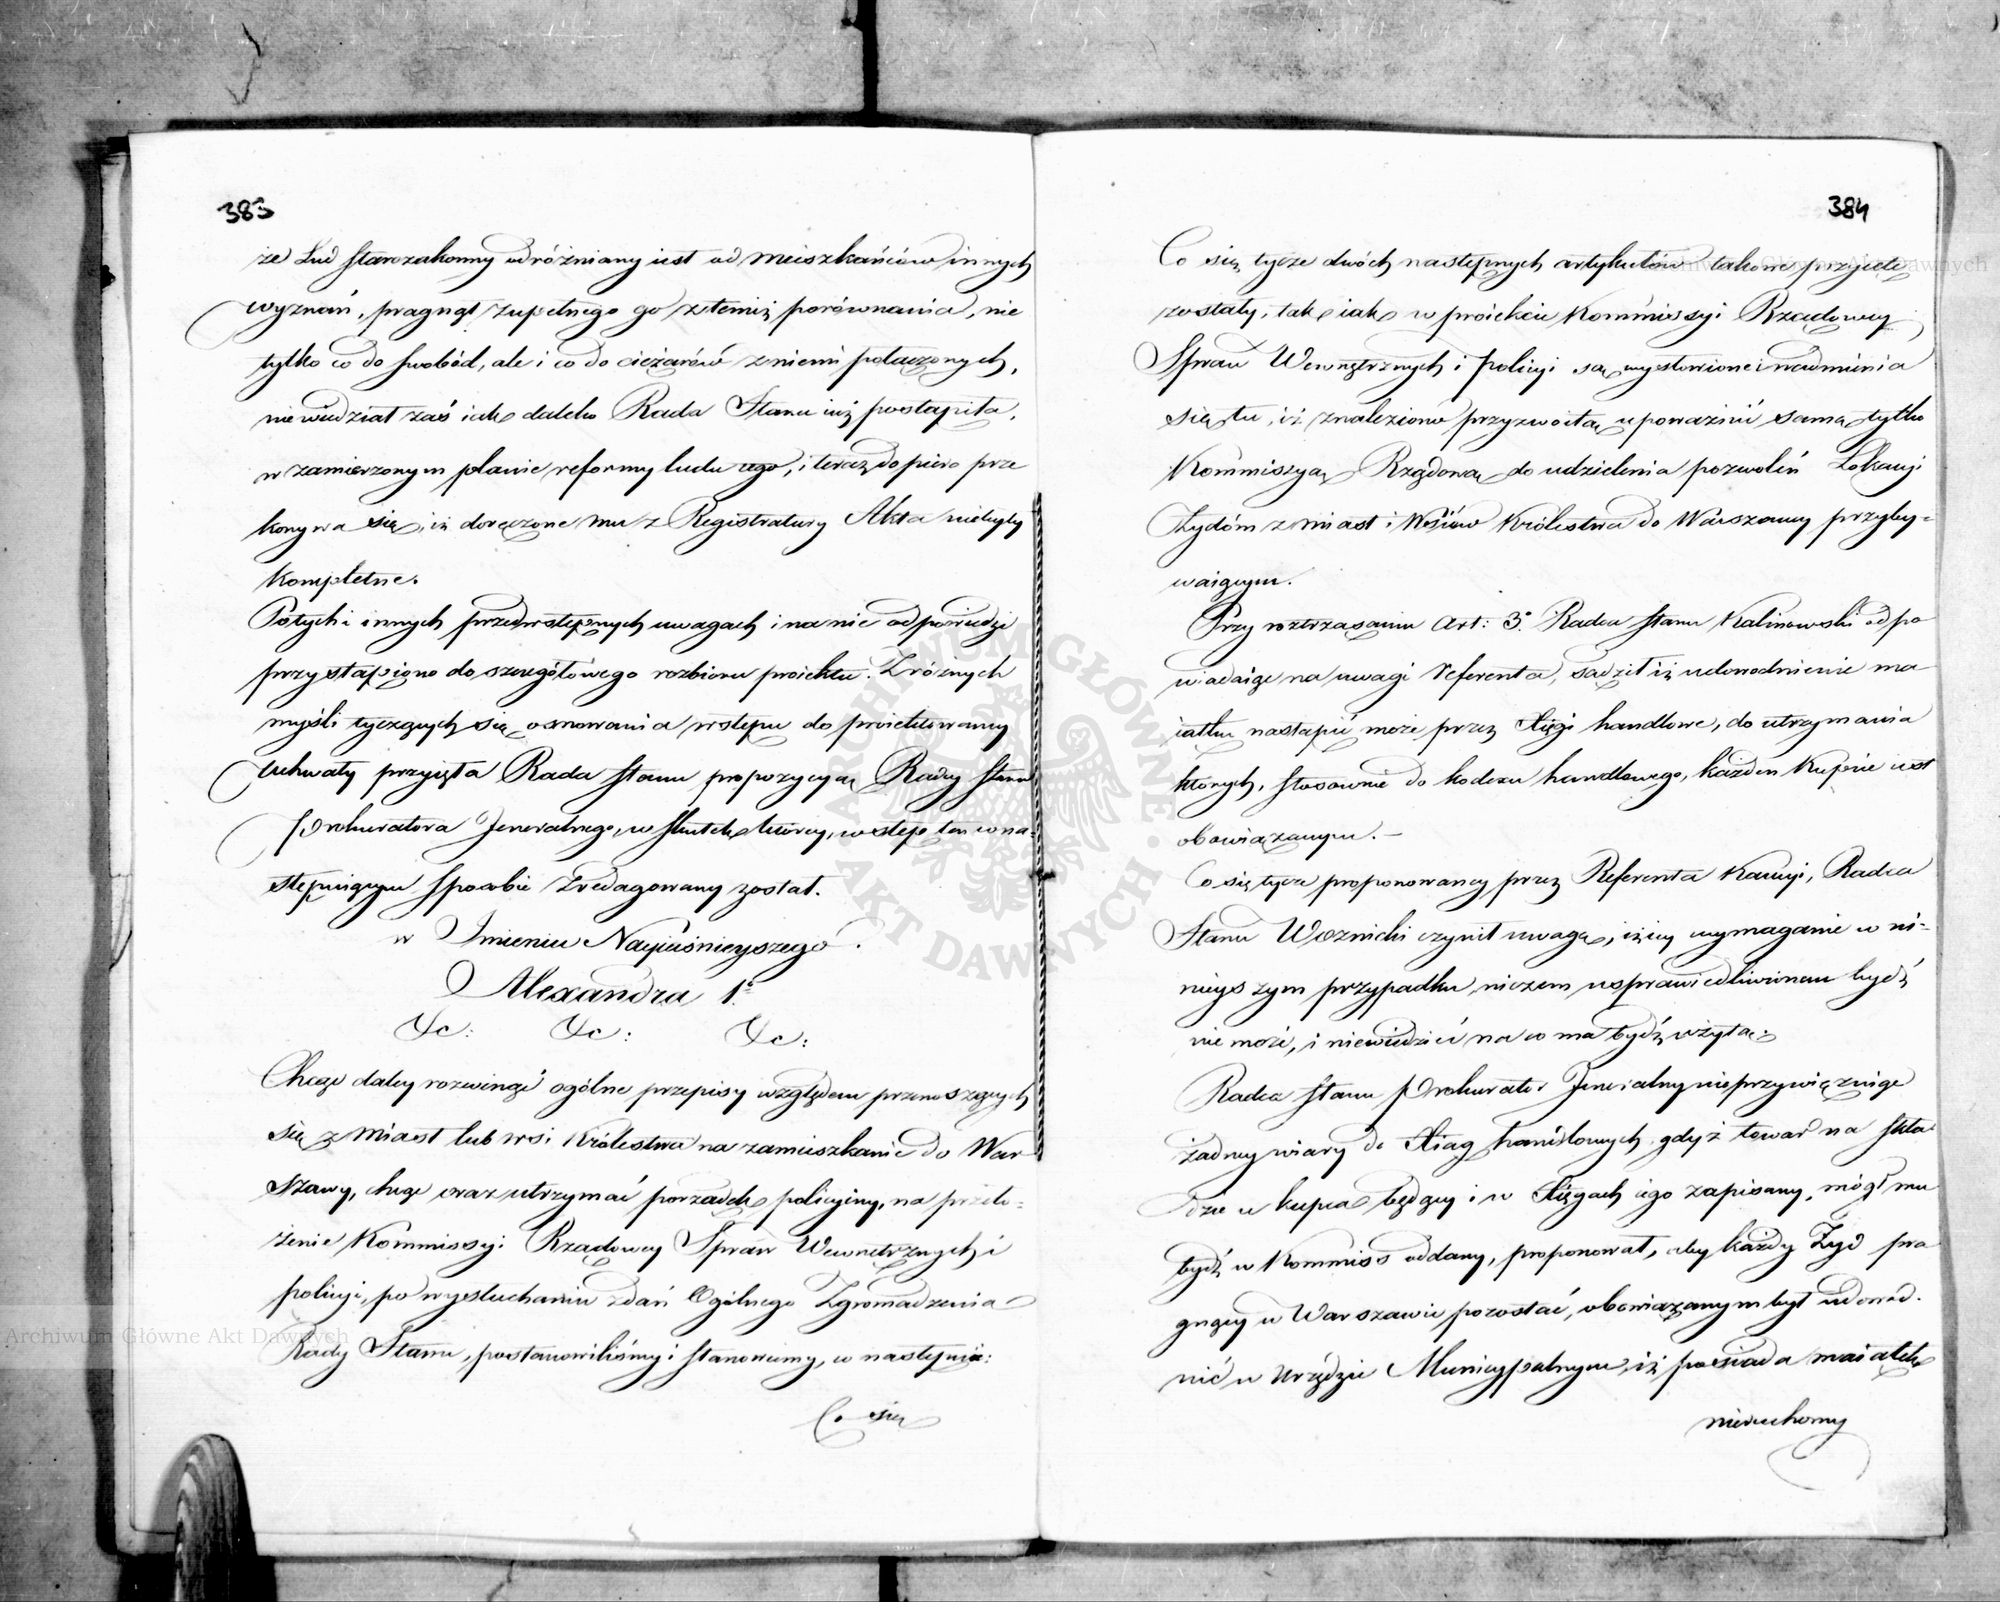 383
że Lud Starozakonny odróżniany iest od mieszkańców innych
wyznań, pragnął zupełnego go z temiż porównania, nie
tylko co do swobód, ale i co do cieżarów z niemi połączonych,
niewiedział zaś iak daleko Rada Stanu iuż postąpiła,
w zamierzonym planie reformy ludu tego, i teraz dopiero prze
konywa się, iż doręczone mu z Registratury Akta niebyły
kompletne.
Po tych i innych przedwstępnych uwagach i na nie odpowiedzi
przystąpiono do szczegółowego rozbioru proiektu. Z różnych
myśli tyczących się osnowania wstępu do proiektowaney
uchwały przyięła Rada Stanu propozycyą Radcy Stanu
Prokuratora Jeneralnego, w skutek którey, wstęp ten w na-
stępuiącym sposobie zredagowany został.
w Imieniu Nayiaśnieyszego
Alexandra 1º
&c: &c: &c:
Chcąc daley rozwinąć ogólne przepisy względem przenoszących
się z Miast lub wsi Królestwa na zamieszkanie do War
szawy, chcąc oraz utrzymać porządek policyiny, na przeło-
żenie Kommissyi Rządowey Spraw Wewnętrznych i
policyi, po wysłuchaniu zdań Ogólnego Zgromadzenia
Rady Stanu, postanowiliśmy i stanowimy, co następuie:
Co się
384
Co się tycze dwóch następnych artykułów takowe przyięte
zostały, tak iak w proiekcie Kommissyi Rządowey
Spraw Wewnętrznych i Policyi są wysłowione i nadmienia
się tu, iż znaleziono przyzwoitą upoważnić samą tylko
Kommissyą Rządową do udzielenia pozwoleń Lokacyi
Żydóm z miast i Wsiów Królestwa do Warszawy przyby-
waiącym.
Przy roztrząsaniu Art: 3. Radca Stanu Kalinowski odpo
wiadaiąc na uwagi Referenta, sądził iż udowodnienie ma
iątku nastąpić może przez Xięgi handlowe, do utrzymania
których, stosownie do kodexu handlowego, każden Kupiec iest
obowiązanym. –
Co się tycze proponowaney przez Referenta Kaucyi, Radca
Stanu Woznicki czynił uwagę, iż iey wymaganie w ni-
nieyszym przypadku niczem usprawiedliwionem bydź
nie może, i niewiedzieć na co ma bydź użyta.
Radca Stanu Prokurator Jeneralny nieprzywięzuiąc
żadney wiary do Xiąg handlowych, gdyż towar na skła
dzie u kupca będący i w Xięgach iego zapisany, mógł mu
bydź w Kommiss oddany, proponował, aby każdy Żyd pra
gnący w Warszawie pozostać, obowiązanym był udowod-
nić w Urzędzie Municypalnym, iż posiada maiątek
nieruchomy
ARCHIWUM GŁÓWNE · AKT DAWNYCH ·
Archiwum Główne Akt Dawnych
Archiwum Główne Akt Dawnych